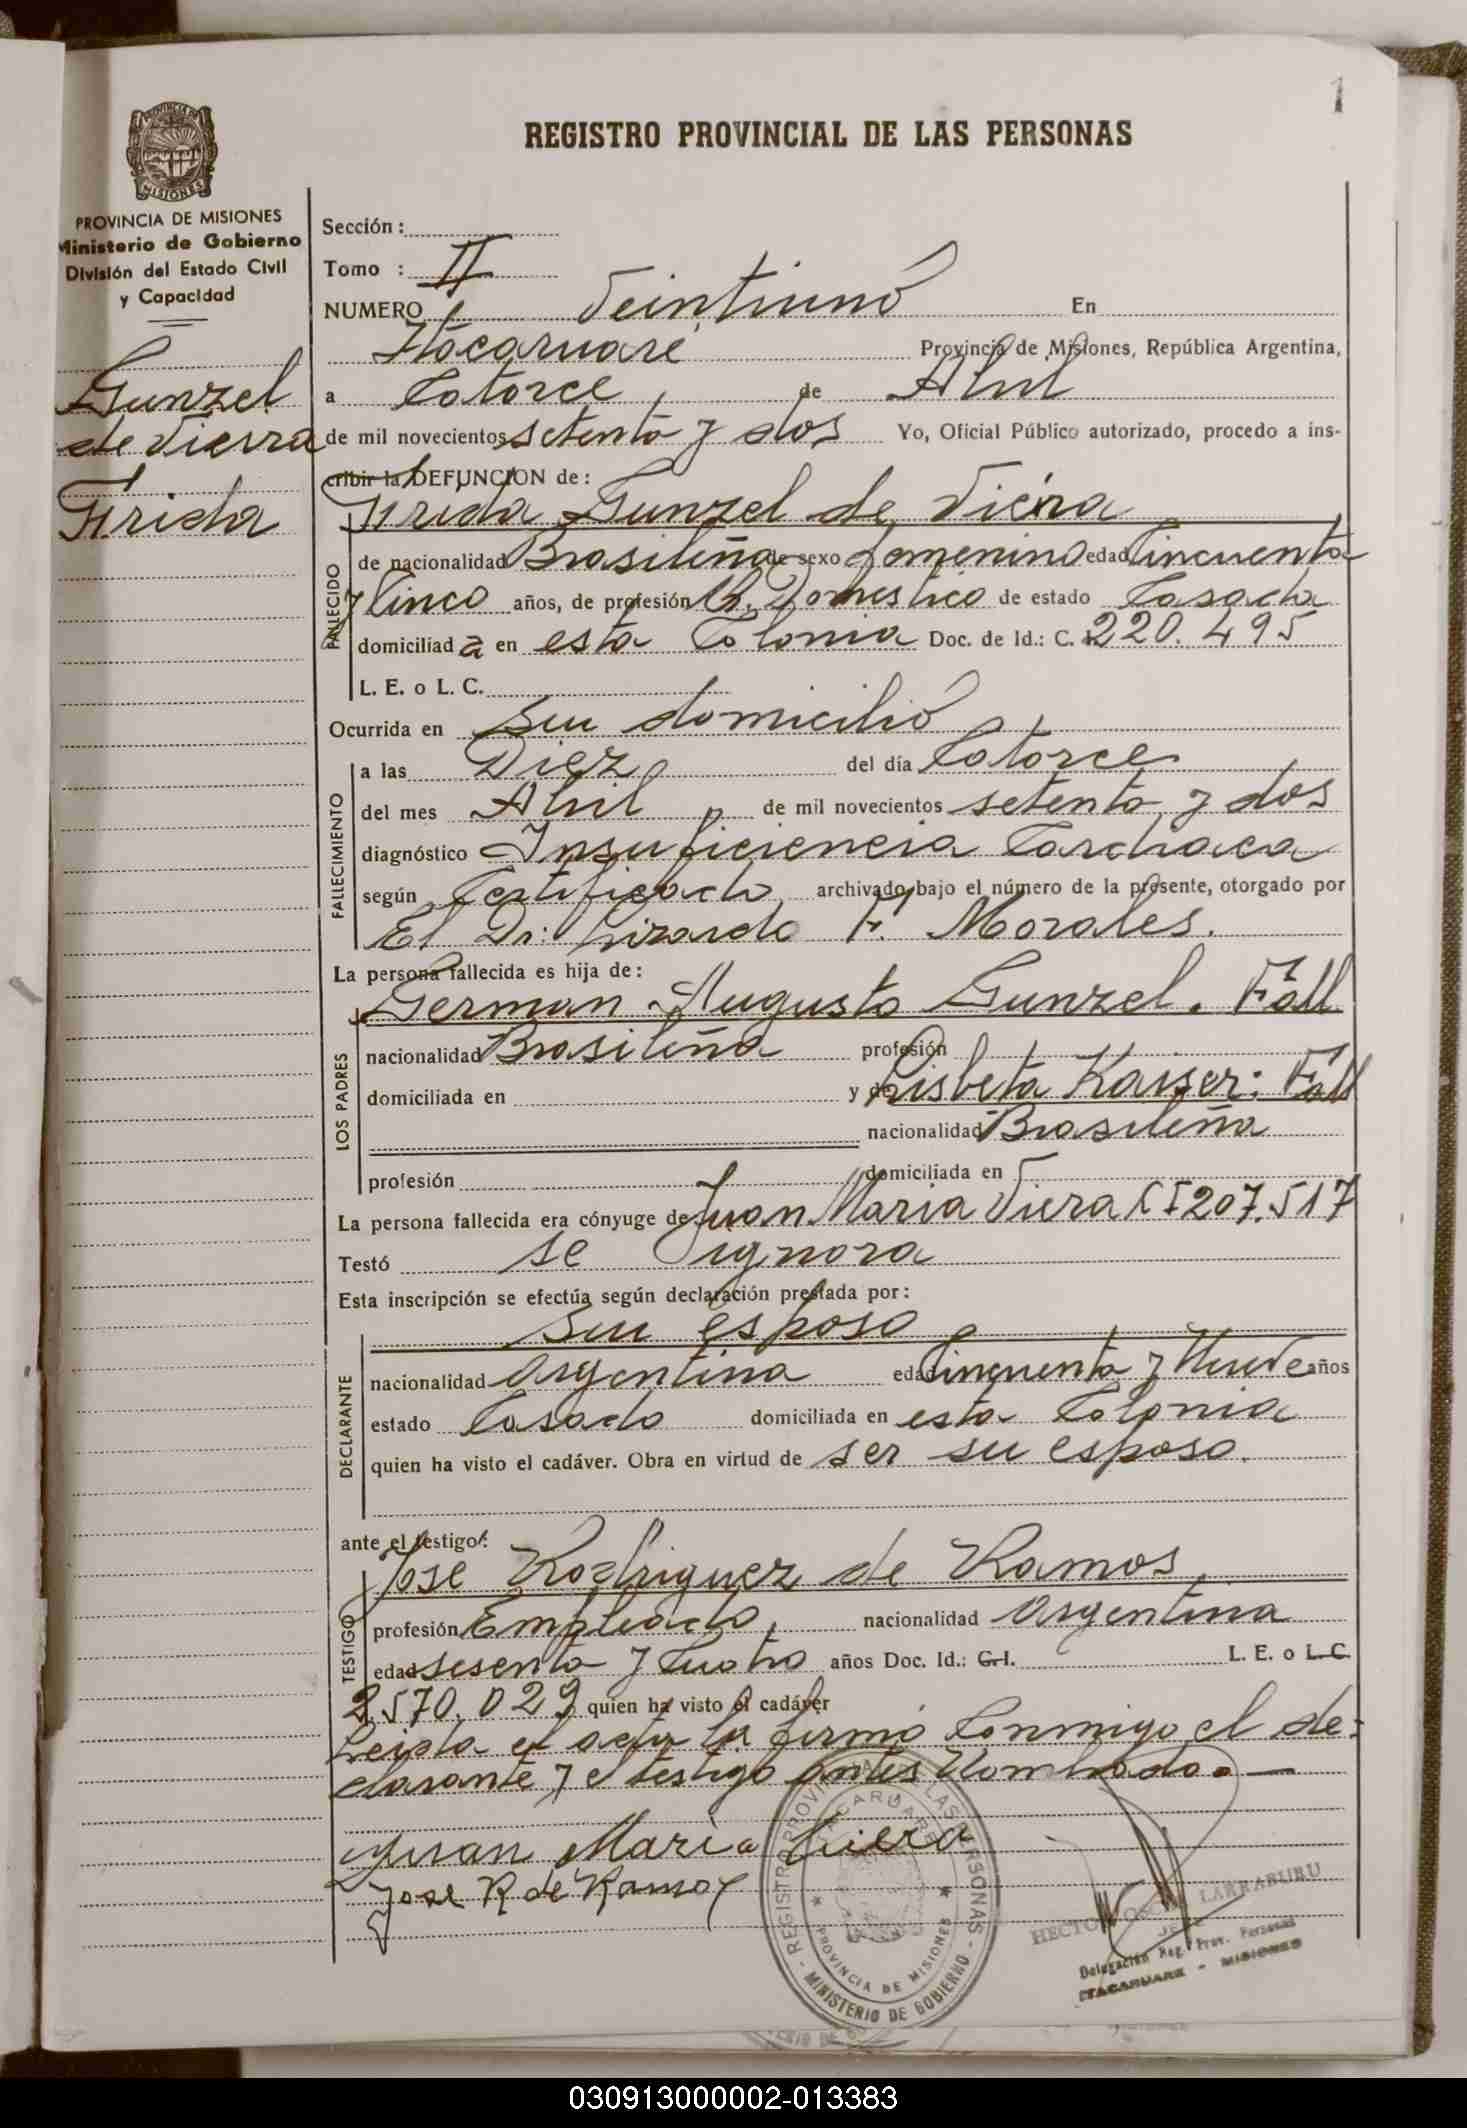 1
REGISTRO PROVINCIAL DE LAS PERSONAS
PROVINCIA DE MISIONES
Ministerio de Gobierno
División del Estado Civil
y Capacidad
Gunzel
de Vierra
Frida
Sección:
Tomo : II
NUMERO Veintiuno En
Itacaruare Provincia de Misiones, República Argentina,
a Catorce de Abril
de mil novecientos setenta y dos Yo, Oficial Público autorizado, procedo a ins-
cribir la DEFUNCION de:
Frida Gunzel de Viera
FALLECIDO
de nacionalidad Brasileña de sexo femenino edad Cincuenta
y Cinco años, de profesión Q. Domestico de estado Casada
domiciliada en esta Colonia Doc. de Id.: C. I. 220.495
L. E. o L. C.
Ocurrida en su domicilio
FALLECIMIENTO
a las Diez del día Catorce
del mes Abril de mil novecientos setenta y dos
diagnóstico Insuficiencia Cardiaca
según Certificado archivado bajo el número de la presente, otorgado por
El Dr: Lizardo F. Morales.
La persona fallecida es hija de:
LOS PADRES
German Augusto Gunzel. Fall
nacionalidad Brasileña profesión
domiciliada en y de Lisbeta Kaiser: Fall
nacionalidad Brasileña
profesión domiciliada en
La persona fallecida era cónyuge de Juan Maria Viera CI 207.517
Testó se ignora
Esta inscripción se efectúa según declaración prestada por:
su esposo
DECLARANTE
nacionalidad argentina edad Cincuenta y Nueve años
estado Casado domiciliada en esta Colonia
quien ha visto el cadáver. Obra en virtud de ser su esposo.
ante el testigo:
TESTIGO
Jose Rodriguez de Ramos
profesión Empleado, nacionalidad argentina
edad sesenta y Cuatro años Doc. Id.: C. I. L. E. o L. C.
2.570.029 quien ha visto el cadáver
Leida el acta la firmó Conmigo el de-
clarante y el testigo antes Nombrado. —
Juan Maria Viera
Jose R de Ramos
REGISTRO PROVINCIAL DE LAS PERSONAS - MINISTERIO DE GOBIERNO -
ITACARUARE * PROVINCIA DE MISIONES *
HECTOR OSCAR LARRABURU
JEFE
Delegación Reg. Prov. Personas
ITACARUARE - MISIONES
030913000002-013383